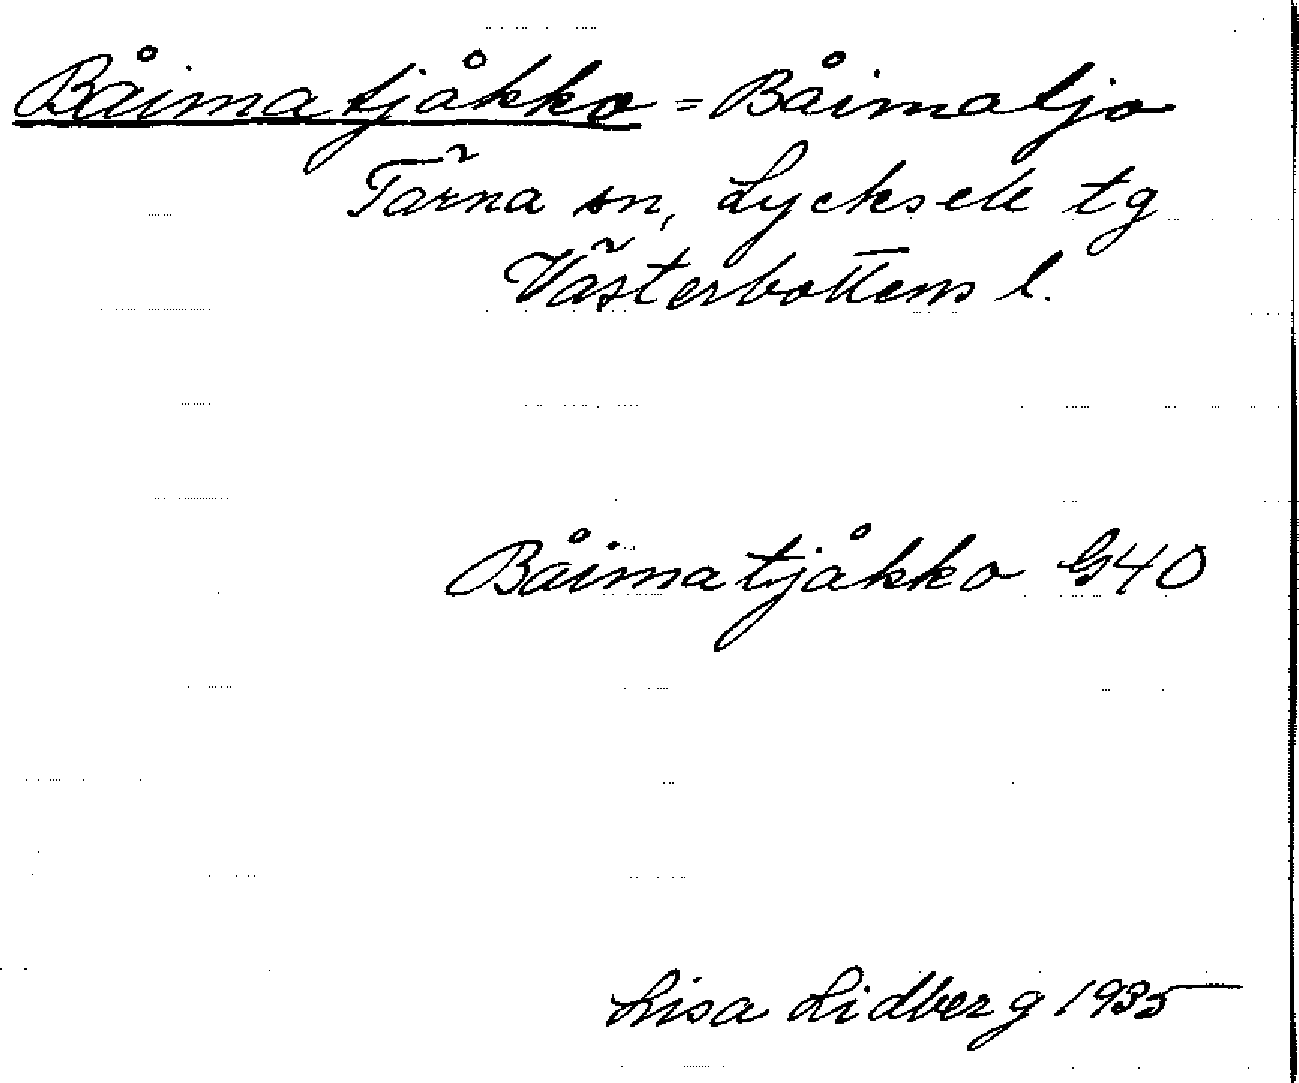 Båimatjåkko = Båimatjo
Tärna sn, Lycksele tg
Västerbottens l.
Båimatjåkko G40
Lisa Lidberg 1935